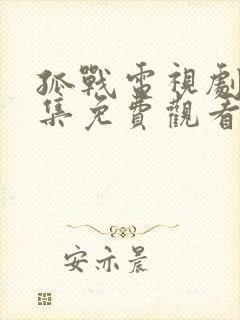 孤戰電視劇
集免費觀看
安亦晨